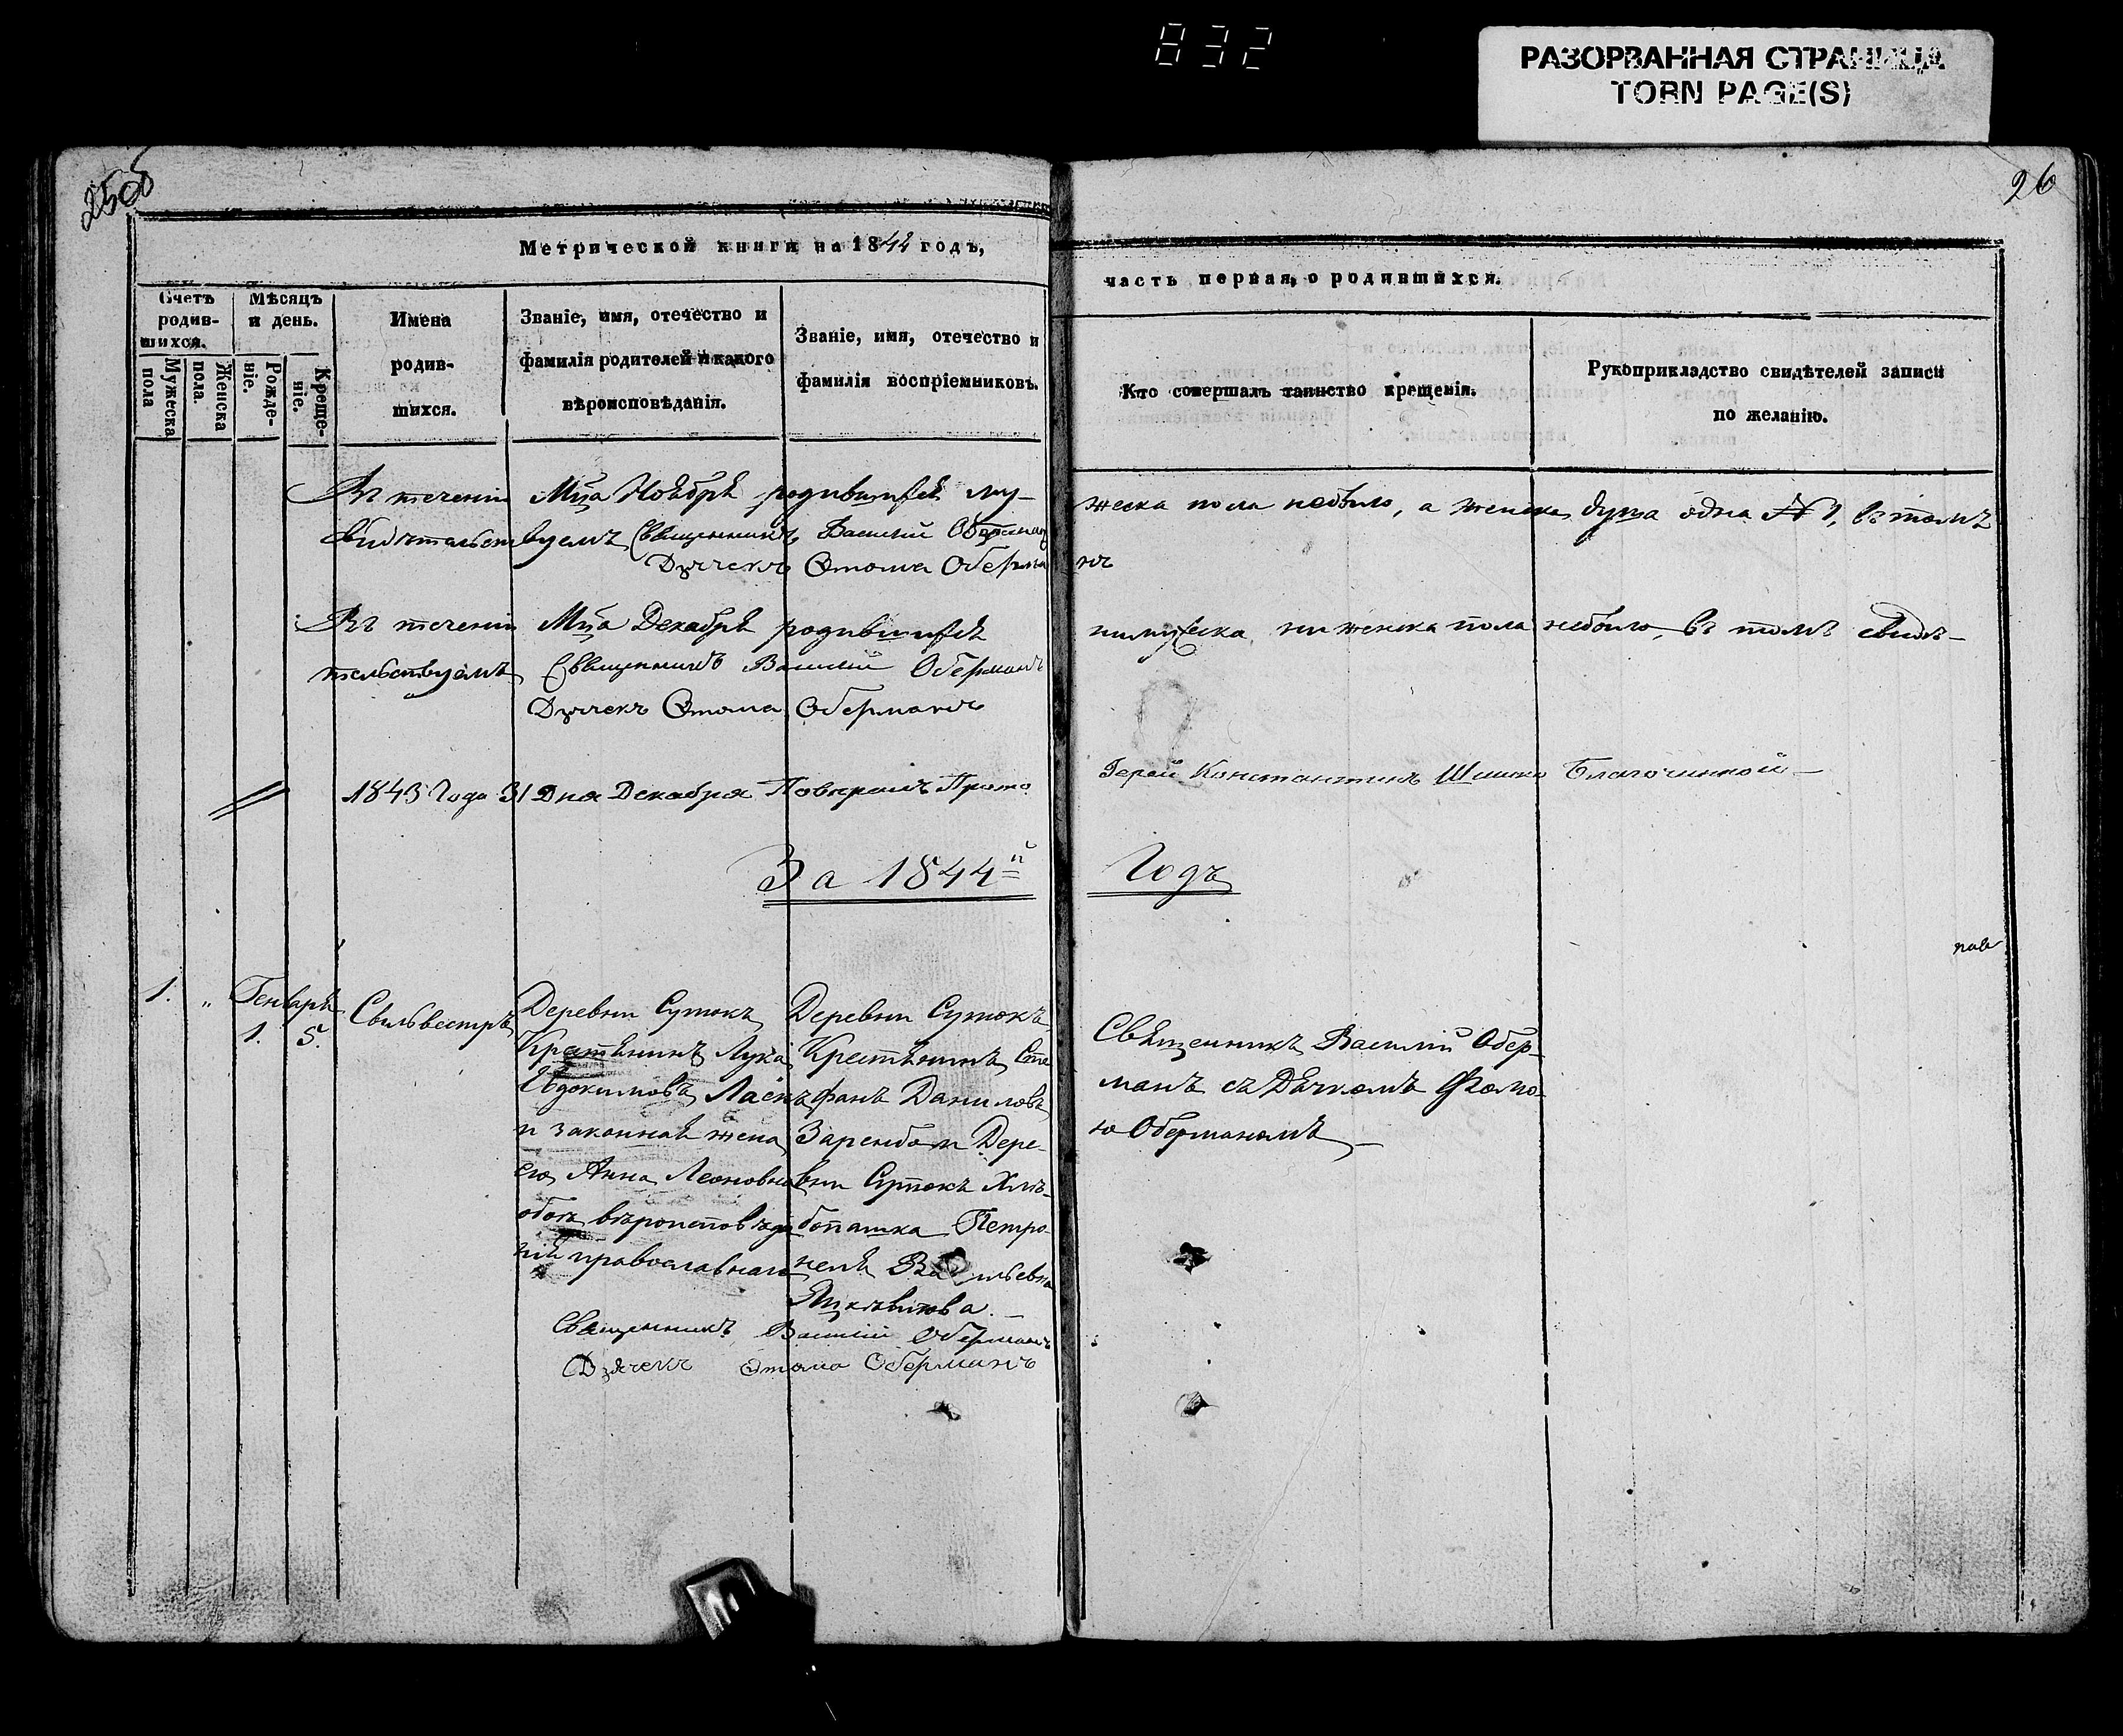 832
РАЗОРВАННАЯ СТРАНИЦА
TORN PAGE(S)
25об
26
Метрической книги на 1842 годъ,
часть первая, о родившихся.
Счетъ родив-шихся.
Мѣсяцъ и день.
Мужеска пола
Женска пола.
Рожде-ніе.
Креще-ніе.
Имена родив-шихся.
Званіе, имя, отечество и фамилія родителей и какого вѣроисповѣданія.
Званіе, имя, отечество и фамилія воспріемниковъ.
Кто совершалъ таинство крещенія.
Рукоприкладство свидѣтелей записи по желанію.
Въ теченіи Мца Ноѣбрѣ родившихсѣ му-
жеска пола небыло, а женска душа одна № 1, въ томъ
свидѣтельствуемъ Священникъ Василий Оберманъ
Дьячекъ Ѳома Оберма
нъ
Въ теченіи Мца Декабрѣ родившихсѣ
нимужеска ни женска пола небыло, въ томъ свидѣ-
тельствуемъ Священникъ Василий Оберманъ
Дьячекъ Ѳома Оберманъ
1843 Года 31 Дня Декабря Повѣрялъ Прото
Іерей Константинъ Шишко Благочинной
За 1844й
Годъ
1. „ Генварѣ
1. 5.
Сильвестръ
Деревни Сутокъ
Крестѣнинъ Лука
Евдокимовъ Ласкъ
и законнаѣ жена
его Анна Леоновна
обое вѣроисповѣда
нія православнаго
Деревни Сутокъ
Крестѣнинъ Сте
фанъ Даниловъ
Заремба и Дере-
вни Сутокъ Хлѣ-
бопашка Петро-
нелѣ Васильевна
Священникъ Василій Обер-
манъ съ Дѣчкомъ Ѳомо-
ю Оберманомъ
Священникъ Василий Оберманъ
Дьячекъ Ѳома Оберманъ